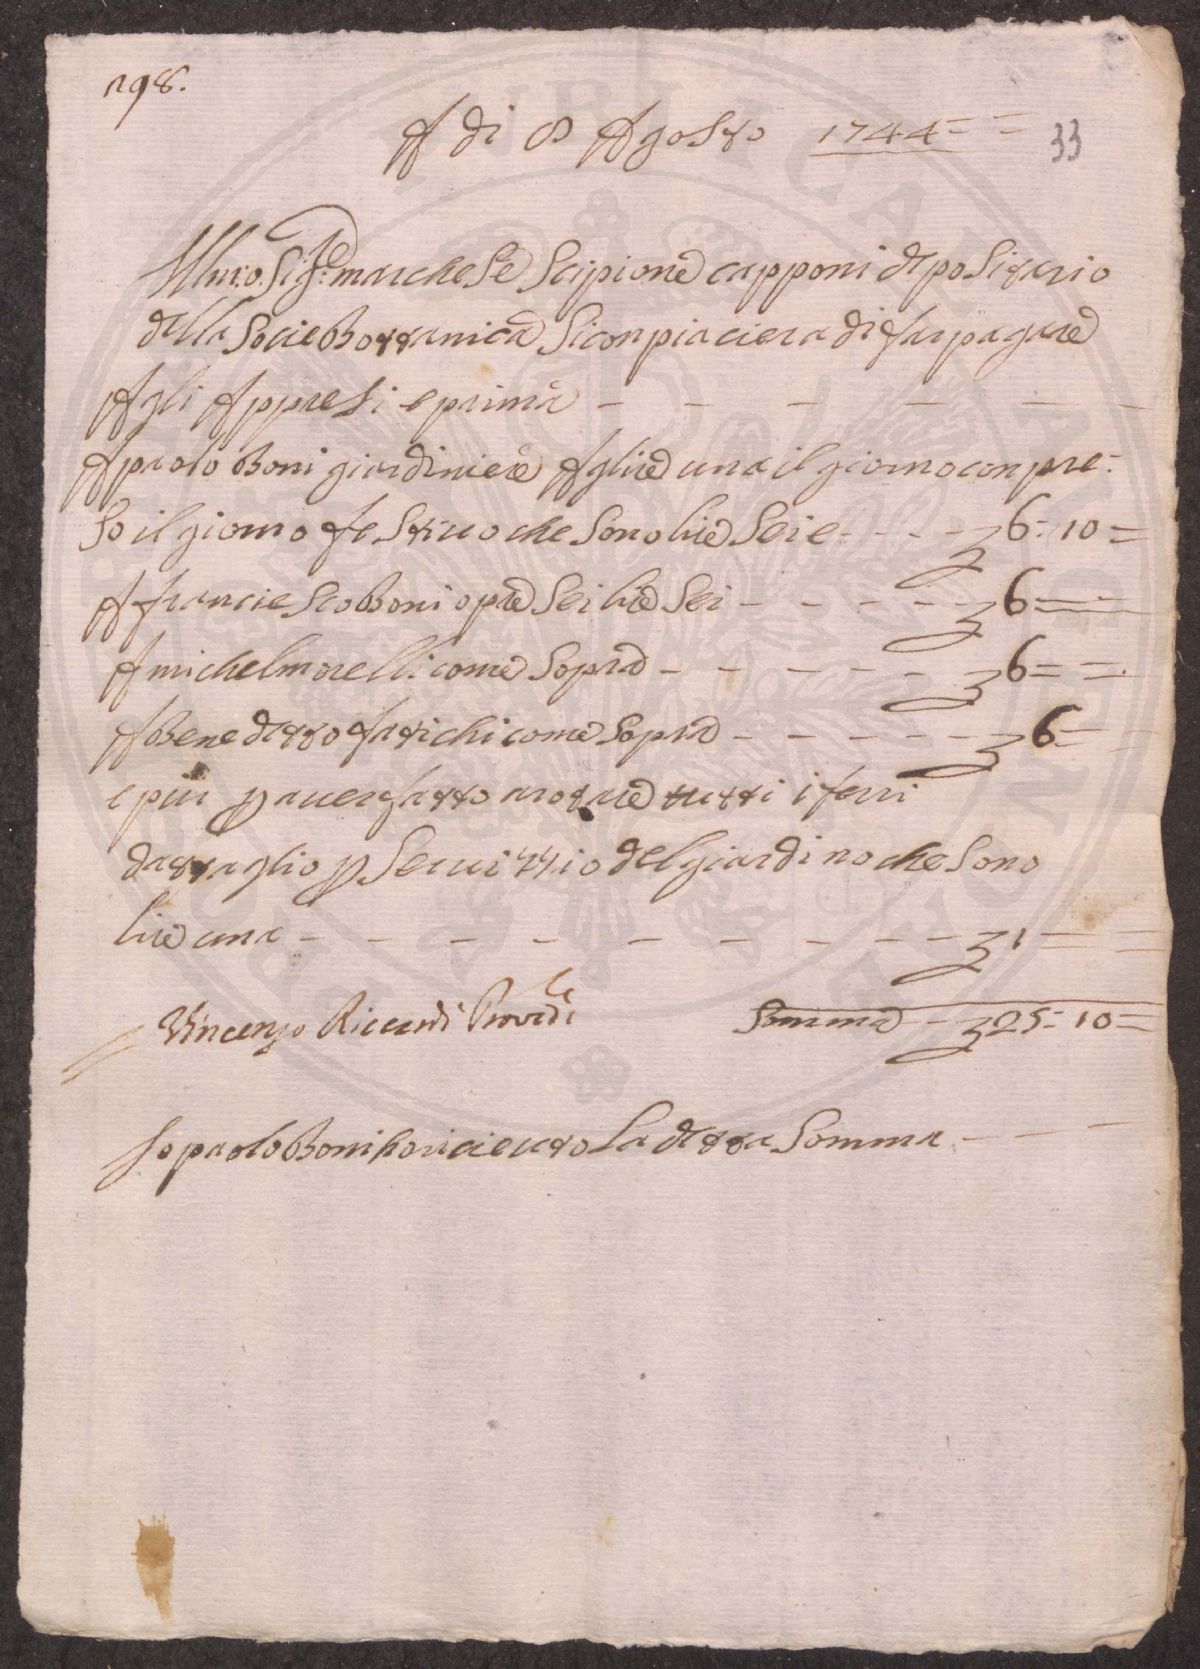 298.
A di 8 Agosto 1744 = =
33
Illmo. Sigre. marchese Scipione capponi depositario
della Socie Bottanica Si conpiaciera di far pagare
Agli Appresi e prima
A paolo Boni giardiniere A lire una il giorno conpre-
so il giorno festiuo che sono lire Sei e - - - 6 - 10 =
A francieSco Boni opre Sei lire Sei - - - 6 = =
A michel morelli come Sopra - - - 6 = =
A Benedetto fatichi come Sopra - - - 6 =
e piu p auer fatto arotare tutti i ferri
dattaglio p Seruizzio del giardino che Sono
lire una - - - 1 = =
Vincenzo Riccardi Provedre
Somma - 25 - 10 =
Io paolo Boni ho riceuto La detta Somma